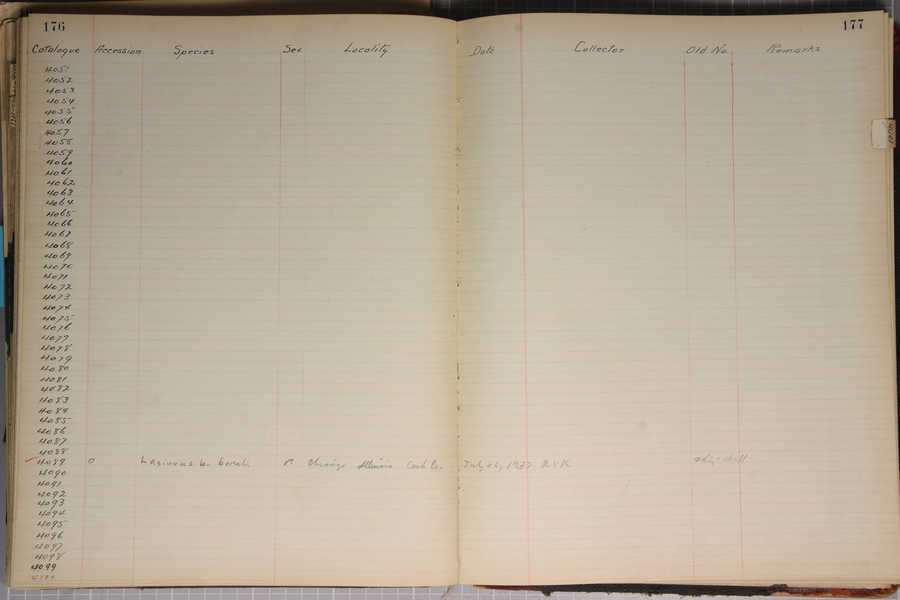 176
177
Catalogue Accession Species Sex Locality Date Collector Old. No. Remarks
4051
4052
4053
4054
4055
4056
4057
4058
4059
4060
4061
4062
4063
4064
4065
4066
4067
4068
4069
4070
4071
4072
4073
4074
4075
4076
4077
4078
4079
4080
4081
4082
4083
4084
4085
4086
4087
4088
4089 Lasiurus b. boreal. Chicago Illinois Cook Co. July 1937
4090
4091
4092
4093
4094
4095
4096
4097
4098
4099